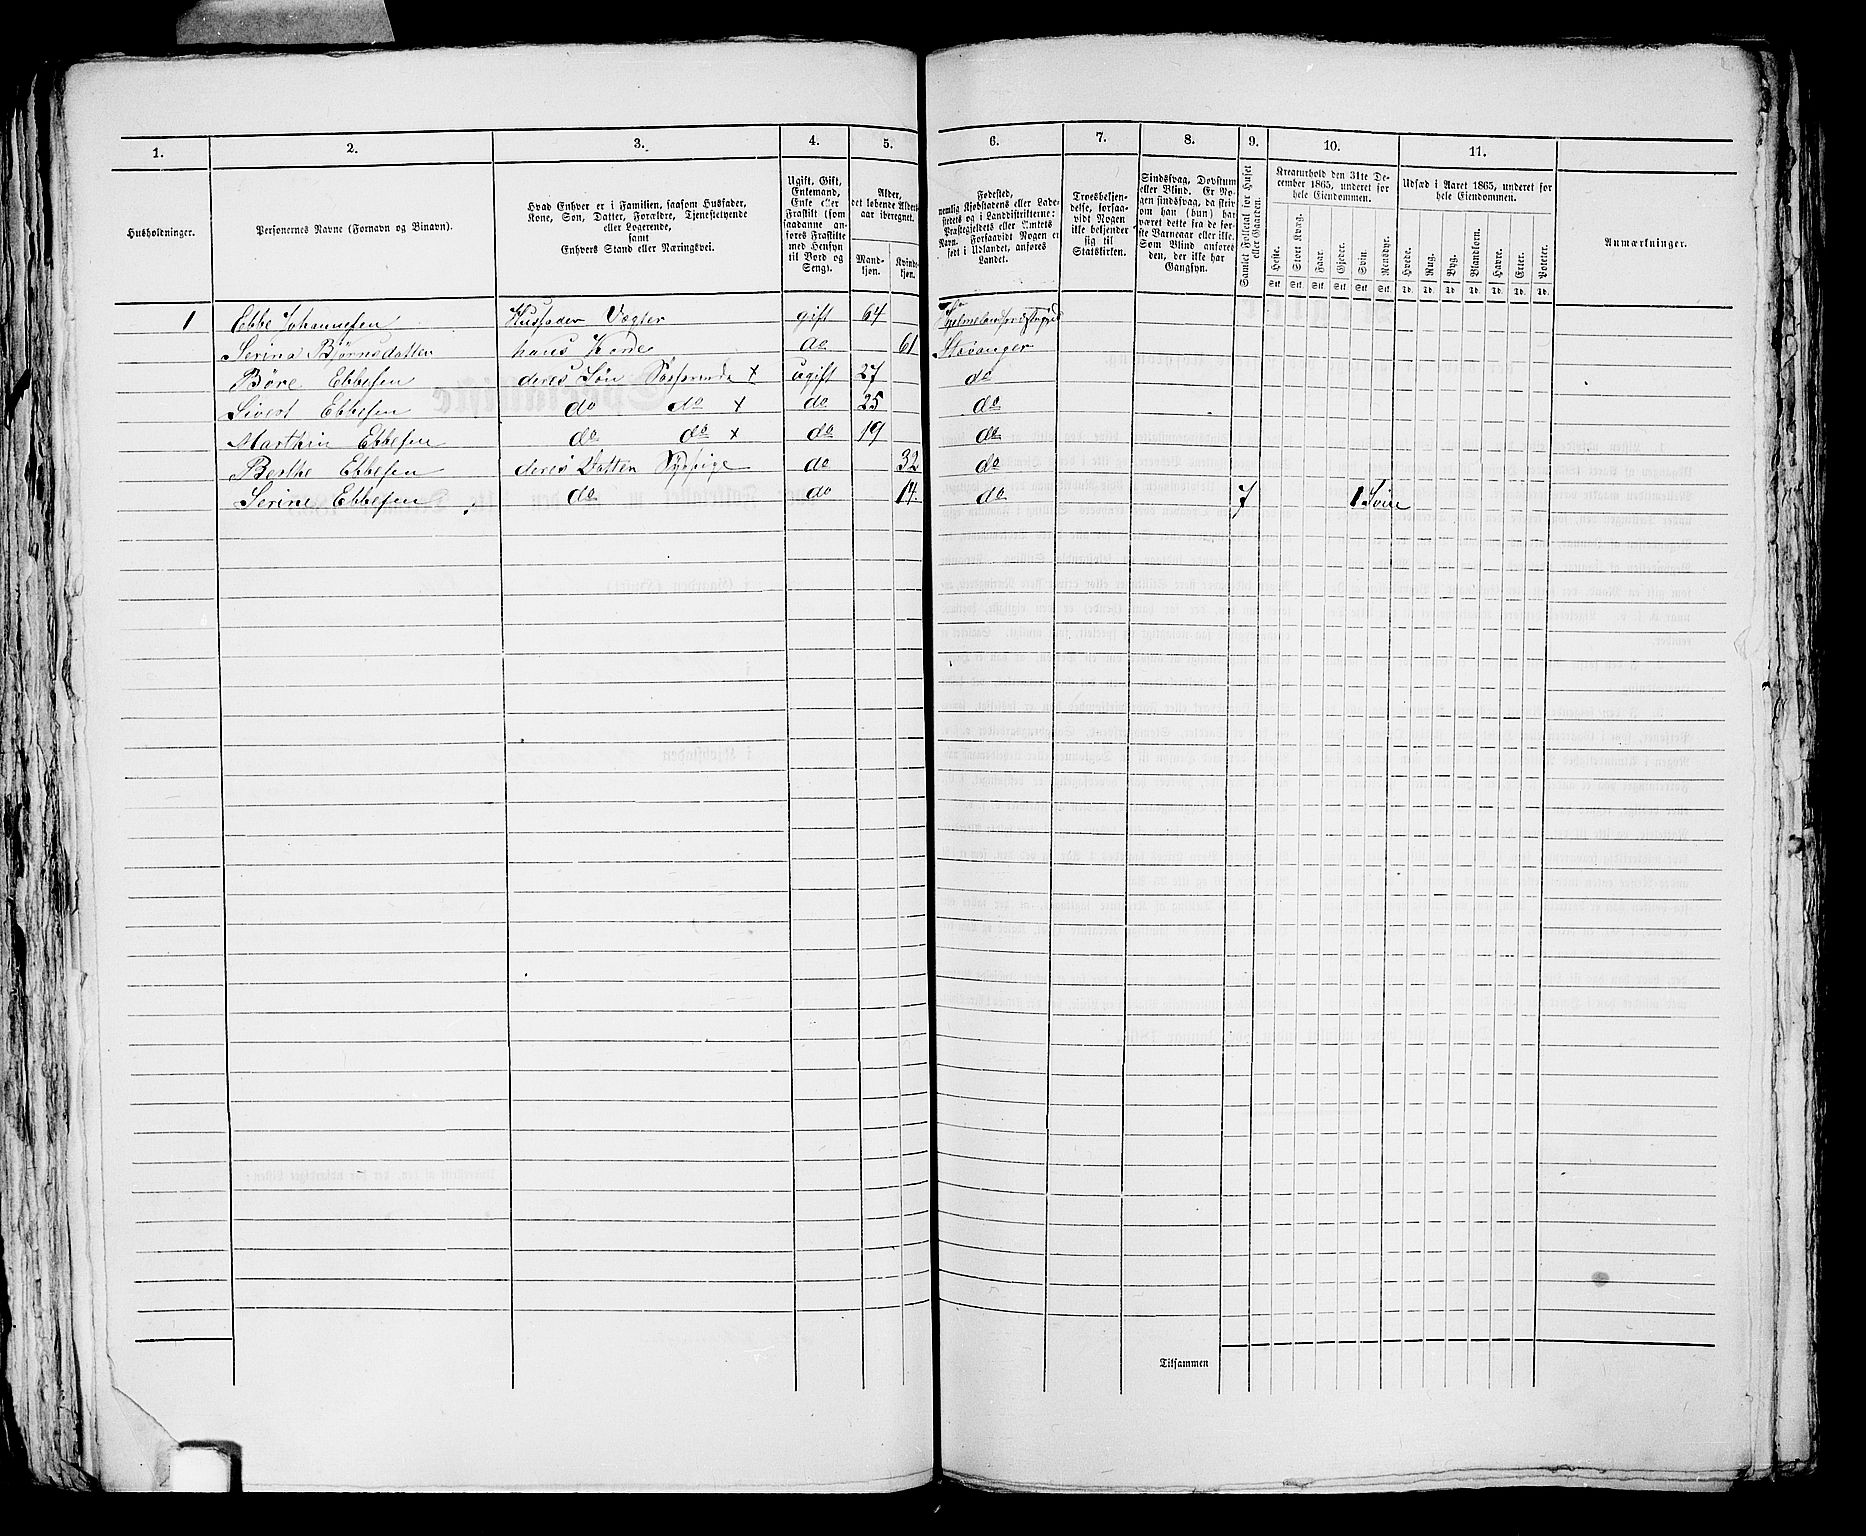 1. 2. 3. 4. 5. 6. 7. 8. 9. 10. 11.
Husholdninger.
Personernes Navne (Fornavn og Binavn).
Hvad Enhver er i Familien, saasom Husfader,
Kone, Søn, Datter, Forældre, Tjenestetyende
eller Logerende,
samt
Enhvers Stand eller Næringsvei.
Ugift, Gift,
Enkemand,
Enke eller
Fraskilt (som
saadanne an-
føres Fraskilte
med Hensyn
til Bord og
Seng).
Alder,
det løbende Alders-
aar iberegnet.
Mand-
kjøn.
Kvind-
kjøn.
Fødested,
nemlig Kjøbstadens eller Lade-
stedets og i Landdistrikterne:
Præstegjeldets eller Amtets
Navn. Forsaavidt Nogen er
født i Udlandet, anføres
Landet.
Troesbekjen-
delse, forsaa-
vidt Nogen
ikke bekjender
sig til
Statskirken.
Sindssvag, Døvstum
eller Blind. Er No-
gen sindssvag, da skriv
om han (hun) har
været dette fra de før-
ste Barneaar eller ikke.
Som Blind anføres
den, der ikke har
Gangsyn.
Samlet Folketal for Huset
eller Gaarden.
Kreaturhold den 31te De-
cember 1865, underet for
hele Eiendommen.
Heste. Stort Kvæg. Faar. Gjeder. Svin. Rensdyr.
Stk. Stk. Stk. Stk. Stk. Stk.
Udsæd i Aaret 1865, underet for
hele Eiendommen.
Hvede. Rug. Byg. Blandkorn. Havre. Erter. Poteter.
Td. Td. Td. Td. Td. Td. Td.
Anmærkninger.
1 Ebbe Johannesen Husfader Vægter gift 64
Serina Bjørnsdatter hans Kone do 61 Stavanger
Børe Ebbesen deres Søn Søefarende x ugift 27 do
Sivert Ebbesen do do x do 25 do
Marthin Ebbesen do do x do 19 do
Berthe Ebbesen deres Datter Sypige do 32 do
Serine Ebbesen do do 14 do 7 1 Sviin
Tilsammen